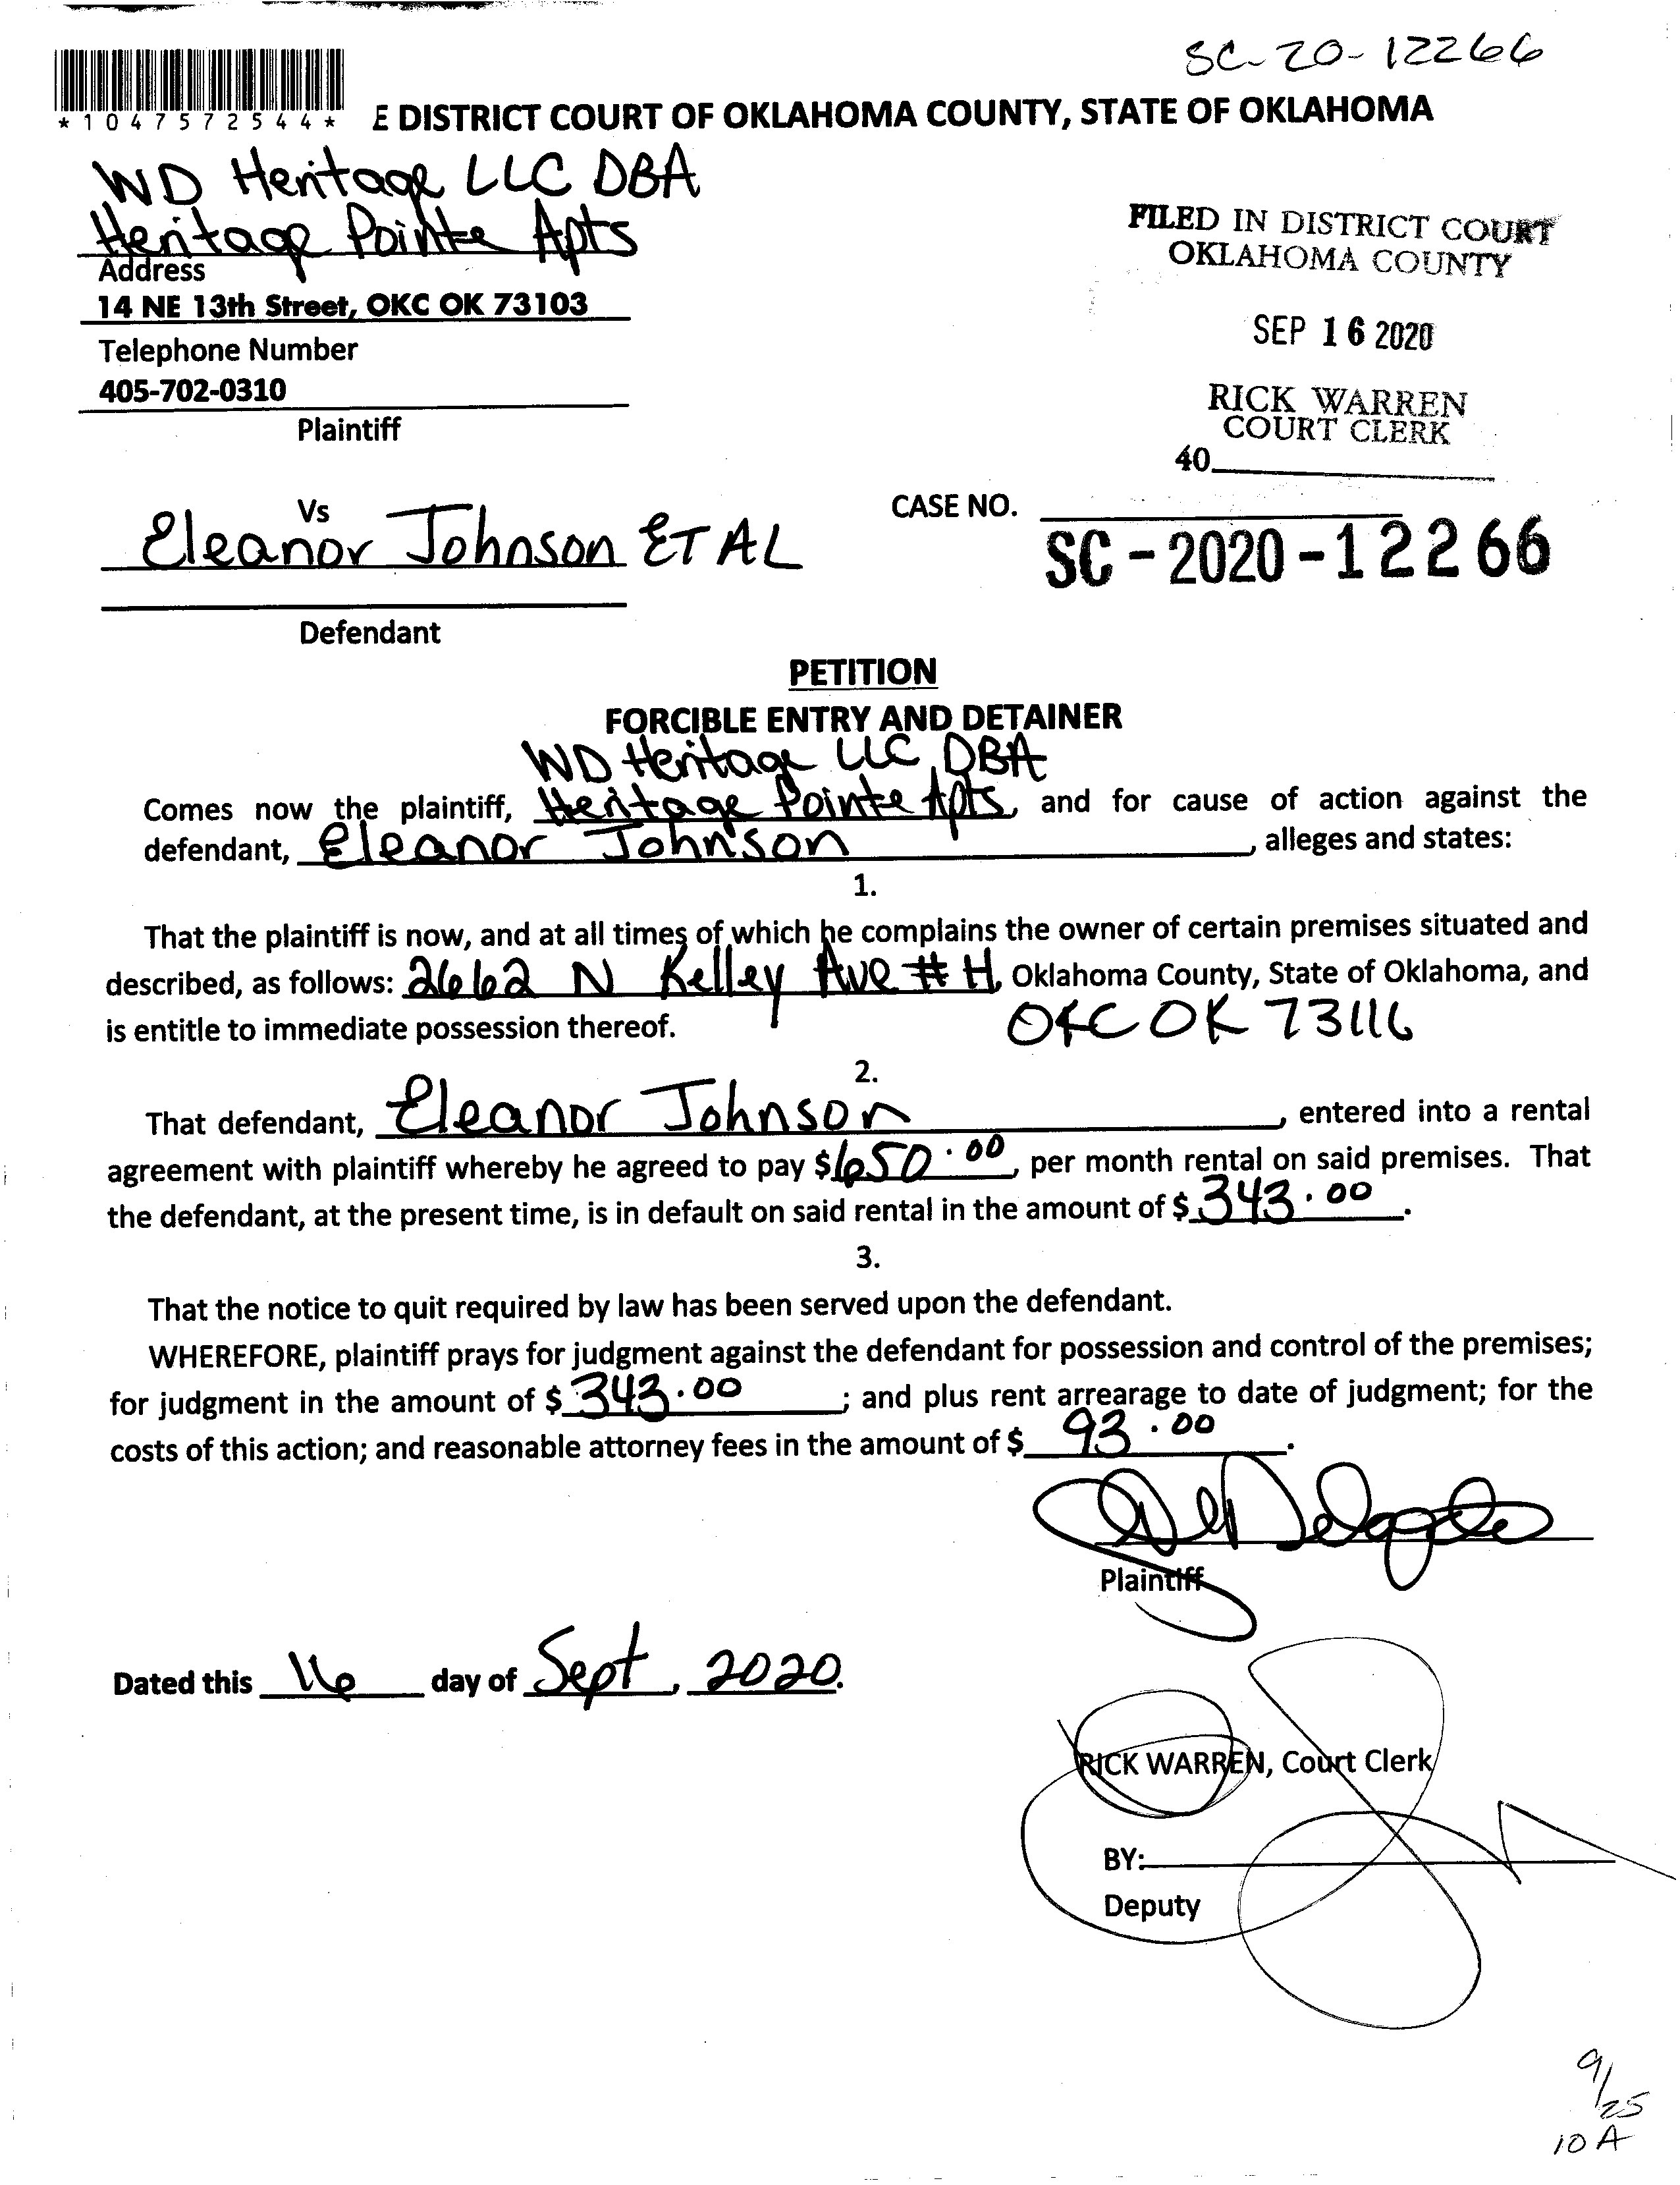 SC-20-12266
*1047572544*
E DISTRICT COURT OF OKLAHOMA COUNTY, STATE OF OKLAHOMA
WD Heritage LLC DBA
Heritage Pointe Apts
Address
14 NE 13th Street, OKC OK 73103
Telephone Number
405-702-0310
Plaintiff
FILED IN DISTRICT COURT
OKLAHOMA COUNTY
SEP 16 2020
RICK WARREN
COURT CLERK
40
Vs
Eleanor Johnson ET AL
Defendant
CASE NO.
SC-2020-12266
PETITION
FORCIBLE ENTRY AND DETAINER
WD Heritage LLC DBA
Comes now the plaintiff, Heritage Pointe Apts, and for cause of action against the
defendant, Eleanor Johnson, alleges and states:
1.
That the plaintiff is now, and at all times of which he complains the owner of certain premises situated and
described, as follows: 2662 N Kelley Ave #H, Oklahoma County, State of Oklahoma, and
is entitle to immediate possession thereof. OKC OK 73116
2.
That defendant, Eleanor Johnson, entered into a rental
agreement with plaintiff whereby he agreed to pay $650.00, per month rental on said premises. That
the defendant, at the present time, is in default on said rental in the amount of $343.00.
3.
That the notice to quit required by law has been served upon the defendant.
WHEREFORE, plaintiff prays for judgment against the defendant for possession and control of the premises;
for judgment in the amount of $343.00; and plus rent arrearage to date of judgment; for the
costs of this action; and reasonable attorney fees in the amount of $93.00.
Plaintiff
Dated this 16 day of Sept, 2020.
RICK WARREN, Court Clerk
BY:
Deputy
9/25
10 A